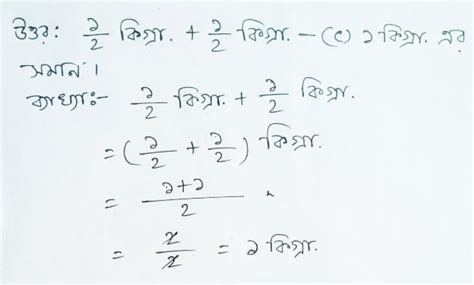 উত্তর: ১/2 কিগ্রা. + ১/2 কিগ্রা. – (c) ১ কিগ্রা. এর
সমান।
ব্যাখ্যা:- ১/2 কিগ্রা. + ১/2 কিগ্রা.
= (১/2 + ১/2) কিগ্রা.
= ১+১/2
= 2/2 = ১ কিগ্রা.